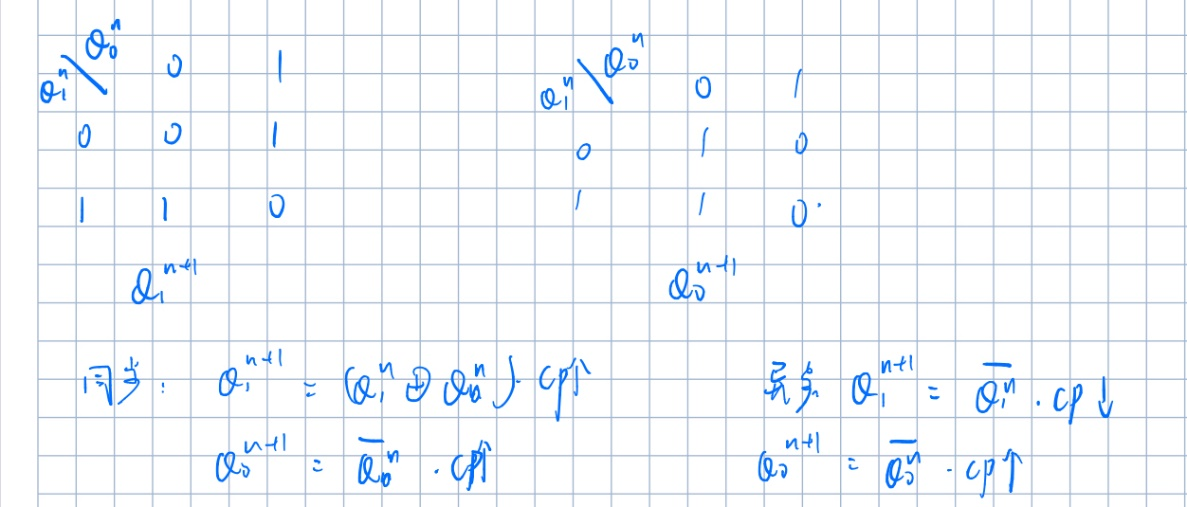 Q₁ⁿ \ Q₀ⁿ 0 1
0 0 1
1 1 0
Q₁ⁿ⁺¹
Q₁ⁿ \ Q₀ⁿ 0 1
0 1 0
1 1 0
Q₀ⁿ⁺¹
同步: Q₁ⁿ⁺¹ = (Q₁ⁿ ⊕ Q₀ⁿ) · CP↑
Q₀ⁿ⁺¹ = Q̅₀ⁿ · CP↑
异步 Q₁ⁿ⁺¹ = Q̅₁ⁿ · CP↓
Q₀ⁿ⁺¹ = Q̅₀ⁿ · CP↑